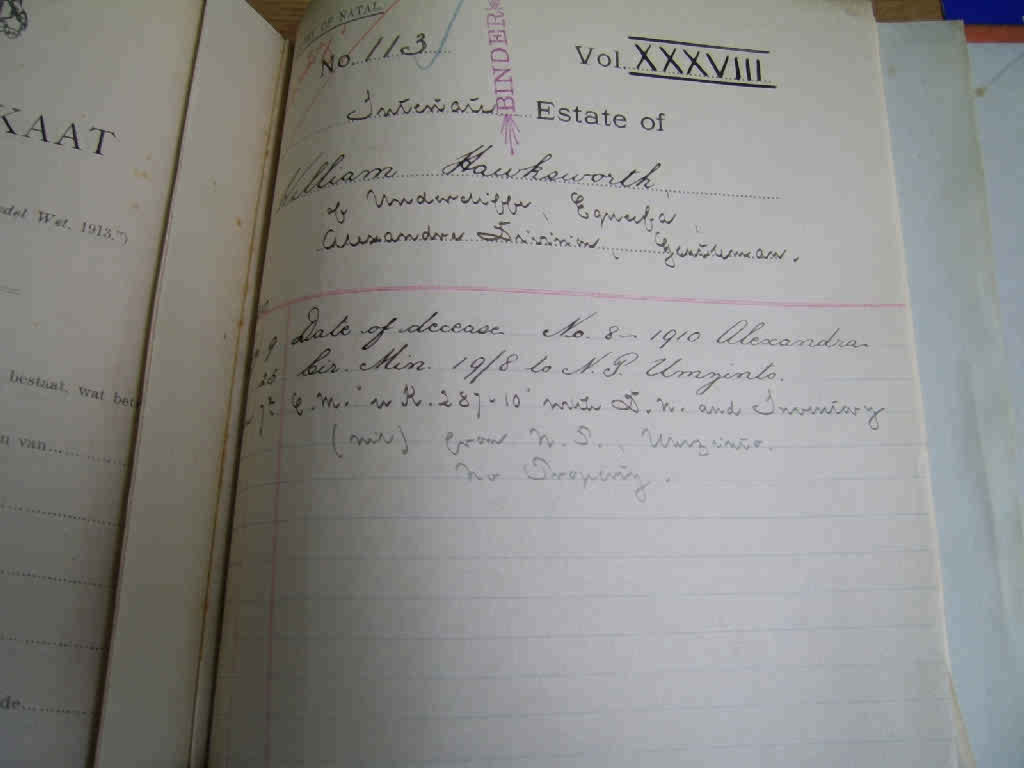 KAAT
del Wet, 1913.")
bestaat, wat bet
n van
de
OF NATAL
No. 113
Vol. XXXVIII
BINDER
Intestate Estate of
William Hawksworth
of Undercliffe, Equeefa
Alexandra Division, Gentleman.
9 Date of decease No. 8 - 1910 Alexandra
25 Cir. Min. 19/8 to N. P. Umzinto.
7 C. M. R. 287-10 with D. N. and Inventory
(nil) from Umzinto.
No Property.